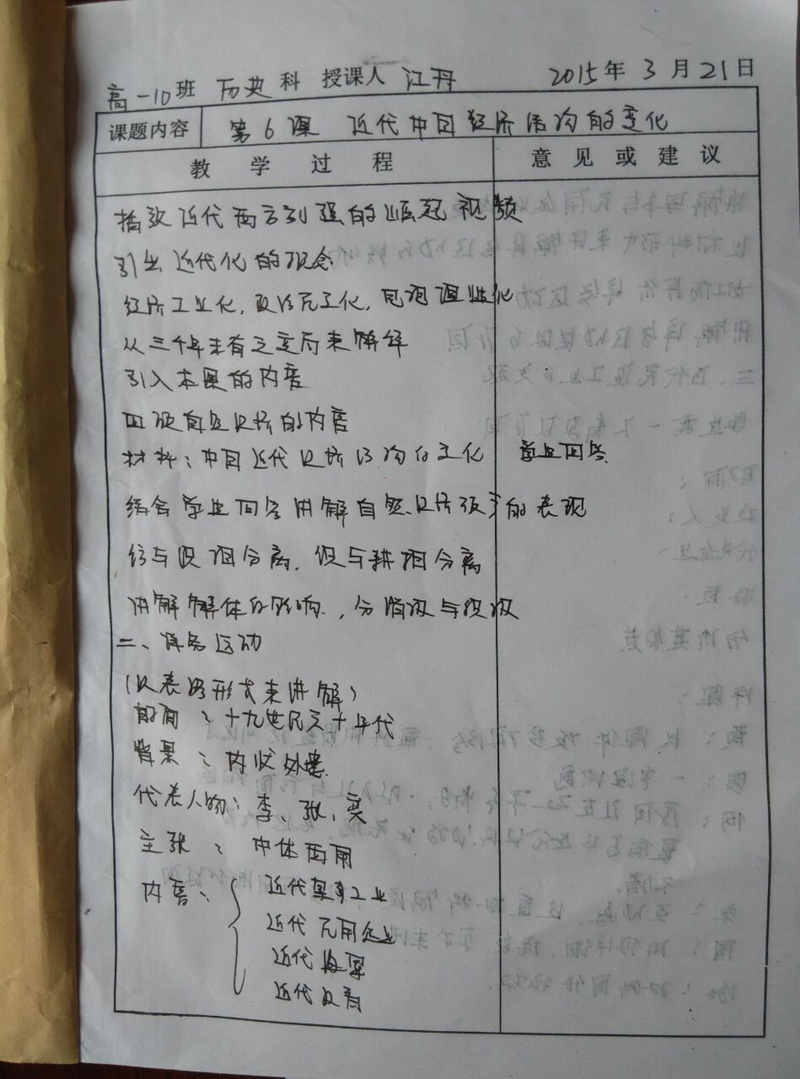 高一10班 历史科 授课人 江丹 2015年3月21日
课题内容 第6课 近代中国经济结构的变化
教学过程 意见或建议
播放近代西方列强的崛起视频
引出近代化的概念
经济工业化,政治民主化,思想理性化
从三千年未有之变局来解释
引入本课的内容
回顾自然经济的内容
材料:中国近代经济结构的变化 学生回答
结合学生回答讲解自然经济 的表现
纺与织相分离,织与耕相分离
讲解解体的影响,分阶段与
二、洋务运动
(以表格形式来讲解)
时间:十九世纪六十年代
背景:内忧外患
代表人物:李、张、
主张:中体西用
内容:
近代军事工业
近代民用企业
近代海军
近代教育